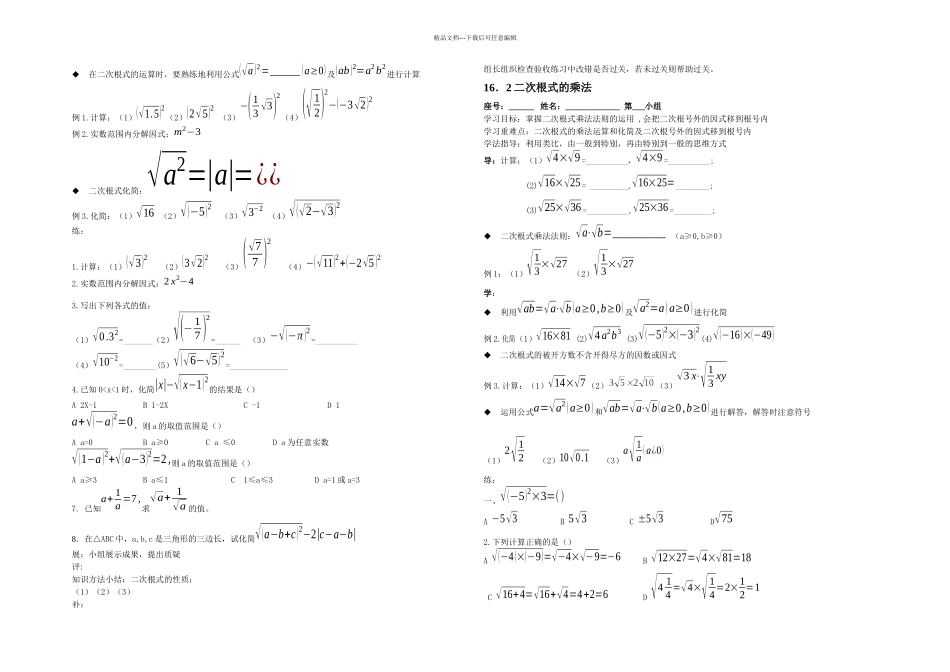 精品文档---下载后可任意编辑
◆ 在二次根式的运算时，要熟练地利用公式(√a)²=______(a≥0)及(ab)²=a²b²进行计算
例1.计算：（1）(√1.5)²（2）(2√5)² （3）−(1/3 √3)²（4）(√(1/2))²−(−3√2)²
例2.实数范围内分解因式：m²−3
◆ 二次根式化简：√a²=|a|=¿¿
例3.化简：（1）√16 （2）√(−5)² （3）√3⁻² （4）√(√2−√3)²
练：
1.计算：（1）(√3)² （2）(3√2)² （3）(√7/7)² （4）−(√11)²+(−2√5)²
2.实数范围内分解因式：2x²−4
3.写出下列各式的值：
（1）√0.3²=______（2）√(−1/7)²=______ （3）−√(−π)²=_________
（4）√10⁻²=_______(5)√(√6−√5)²=____________
4.已知0<x<1时，化简|x|−√(x−1)²的结果是()
A 2X-1 B 1-2X C -1 D 1
a+√(−a)²=0，则a的取值范围是()
A a=0 B a≥0 C a ≤0 D a为任意实数
√(1−a)²+√(a−3)²=2,则a的取值范围是()
A a≥3 B a≤1 C 1≤a≤3 D a=1或a=3
7. 已知a+1/a=7，求√a+1/√a的值。
8. 在△ABC中，a,b,c是三角形的三边长，试化简√(a−b+c)²−2|c−a−b|
展：小组展示成果，提出质疑
评:
知识方法小结：二次根式的性质：
（1）（2）（3）
补：
组长组织检查验收练习中改错是否过关，若未过关则帮助过关。
16．2 二次根式的乘法
座号：______ 姓名：_____________ 第___小组
学习目标：掌握二次根式乘法法则的运用 ,会把二次根号外的因式移到根号内
学习重难点：二次根式的乘法运算和化简及二次根号外的因式移到根号内
学法指导：利用类比，由一般到特别，再由特别到一般的思维方式
导：计算：（1）√4×√9=_________, √4×9=_________;
(2)√16×√25= _________,√16×25=________;
(3)√25×√36=_________,√25×36=________;
◆ 二次根式乘法法则：√a·√b=____________ （a≥0,b≥0）
例1：（1）√(1/3)×√27 （2）√(1/3)×√27
学：
◆ 利用√ab=√a·√b(a≥0,b≥0)及√a²=a(a≥0)进行化简
例2.化简（1）√16×81 (2)√4a²b³ (3)√(−5)²×(−3)²(4)√(−16)×(−49)
◆ 二次根式的被开方数不含开得尽方的因数或因式
例3.计算：（1）√14×√7（2）3√5×2√10（3）√3x·√(1/3 xy)
◆ 运用公式a=√a²(a≥0)和√ab=√a·√b(a≥0,b≥0)进行解答，解答时注意符号
（1）2√(1/2) （2）10√0.1 （3）a√(1/a)(a¿0)
练：
一、√(−5)²×3=()
A −5√3 B 5√3 C ±5√3 D√75
2.下列计算正确的是（）
A √(−4)×(−9)=√−4×√−9=−6 B √12×27=√4×√81=18
C √16+4=√16+√4=4+2=6 D √(4 1/4)=√4×√(1/4)=2×1/2=1